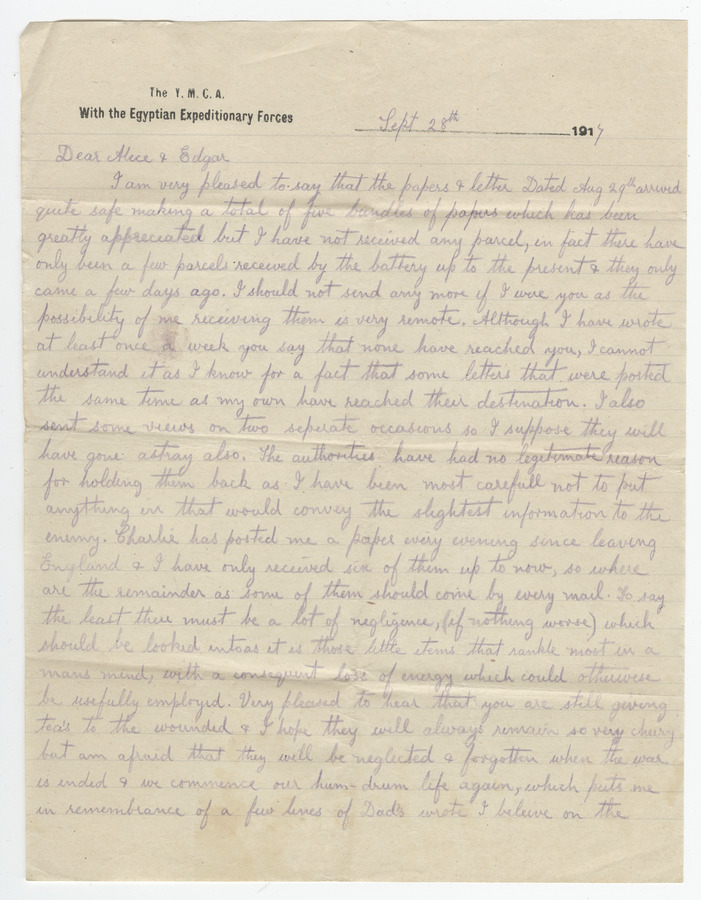 The Y. M. C. A.
With the Egyptian Expeditionary Forces
Sept 28th 1917
Dear Alice & Edgar
I am very pleased to say that the papers & letter Dated Aug 29th arrived
quite safe making a total of five bundles of papers which has been
greatly appreciated but I have not received any parcel, in fact there have
only been a few parcels received by the battery up to the present & they only
came a few days ago. I should not send any more if I were you as the
possibility of me receiving them is very remote. Although I have wrote
at least once a week you say that none have reached you, I cannot
understand it as I know for a fact that some letters that were posted
the same time as my own have reached their destination. I also
sent some views on two seperate occasions so I suppose they will
have gone astray also. The authorities have had no legitimate reason
for holding them back as I have been most carefull not to put
anything in that would convey the slightest information to the
enemy. Charlie has posted me a paper every evening since leaving
England & I have only received six of them up to now, so where
are the remainder as some of them should come by every mail. To say
the least there must be a lot of negligence, (if nothing worse) which
should be looked into as it is those little items that rankle most in a
mans mind, with a consequent loss of energy which could otherwise
be usefully employed. Very pleased to hear that you are still giving
tea's to the wounded & I hope they will always remain so very cheery
but am afraid that they will be neglected & forgotten when the war
is ended & we commence our hum-drum life again, which puts me
in remembrance of a few lines of Dad's wrote I beleive on the